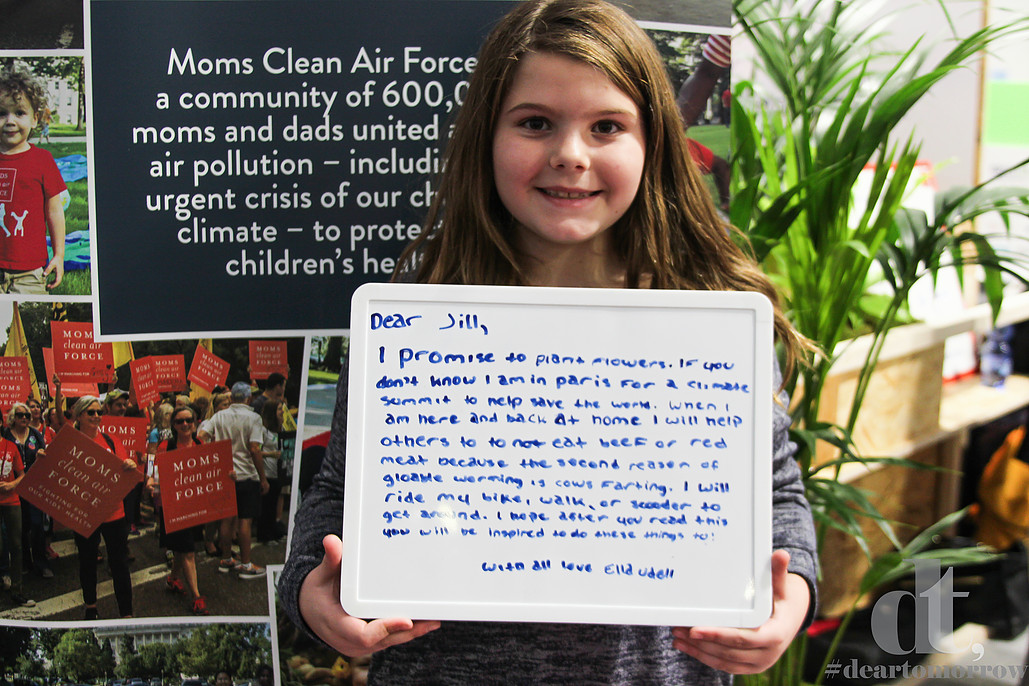 Moms Clean Air Force
a community of 600,0
moms and dads united a
air pollution – includi
urgent crisis of our ch
climate – to protec
children's heal
MOMS
clean air
FORCE
MOMS
clean air
FORCE
FIGHTING FOR
OUR KIDS' HEALTH
MOMS
clean air
FORCE
Dear Jill,
I promise to plant flowers. If you
don't know I am in paris for a climate
summit to help save the world. When I
am here and back at home I will help
others to to not eat beef or red
meat because the second reason of
gloable worming is cows farting. I will
ride my bike, walk, or scooder to
get around. I hope after you read this
you will be inspired to do these things to!
with all love Ella Udell
dt,
#deartomorrow